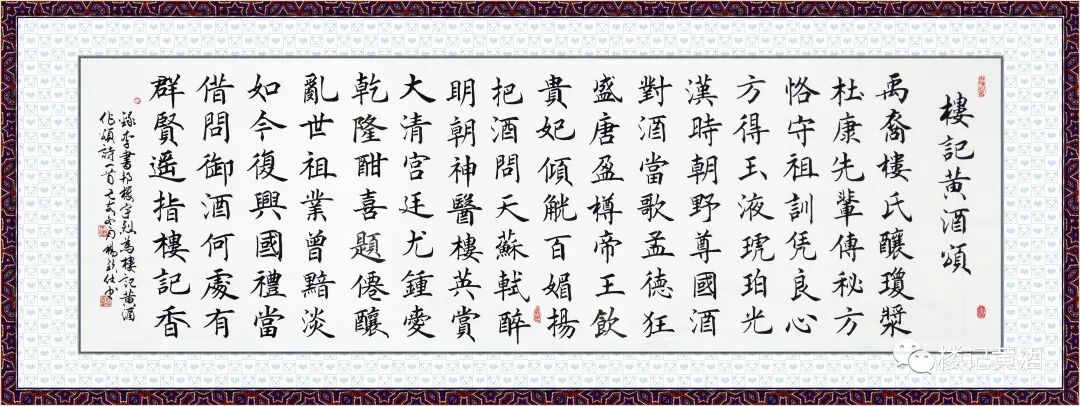 樓記黃酒頌
禹裔樓氏釀瓊漿
杜康先輩傳秘方
恪守祖訓凭良心
方得玉液琥珀光
漢時朝野尊國酒
對酒當歌孟德狂
盛唐盈樽帝王飲
貴妃傾觥百媚揚
把酒問天蘇軾醉
明朝神醫樓英賞
大清宮廷尤鍾愛
乾隆酣喜題僊釀
亂世祖業曾黯淡
如今復興國禮當
借問御酒何處有
群賢遥指樓記香
錄李書 樓宇烈為樓記黃酒
作頌詩一首
楼记黄酒